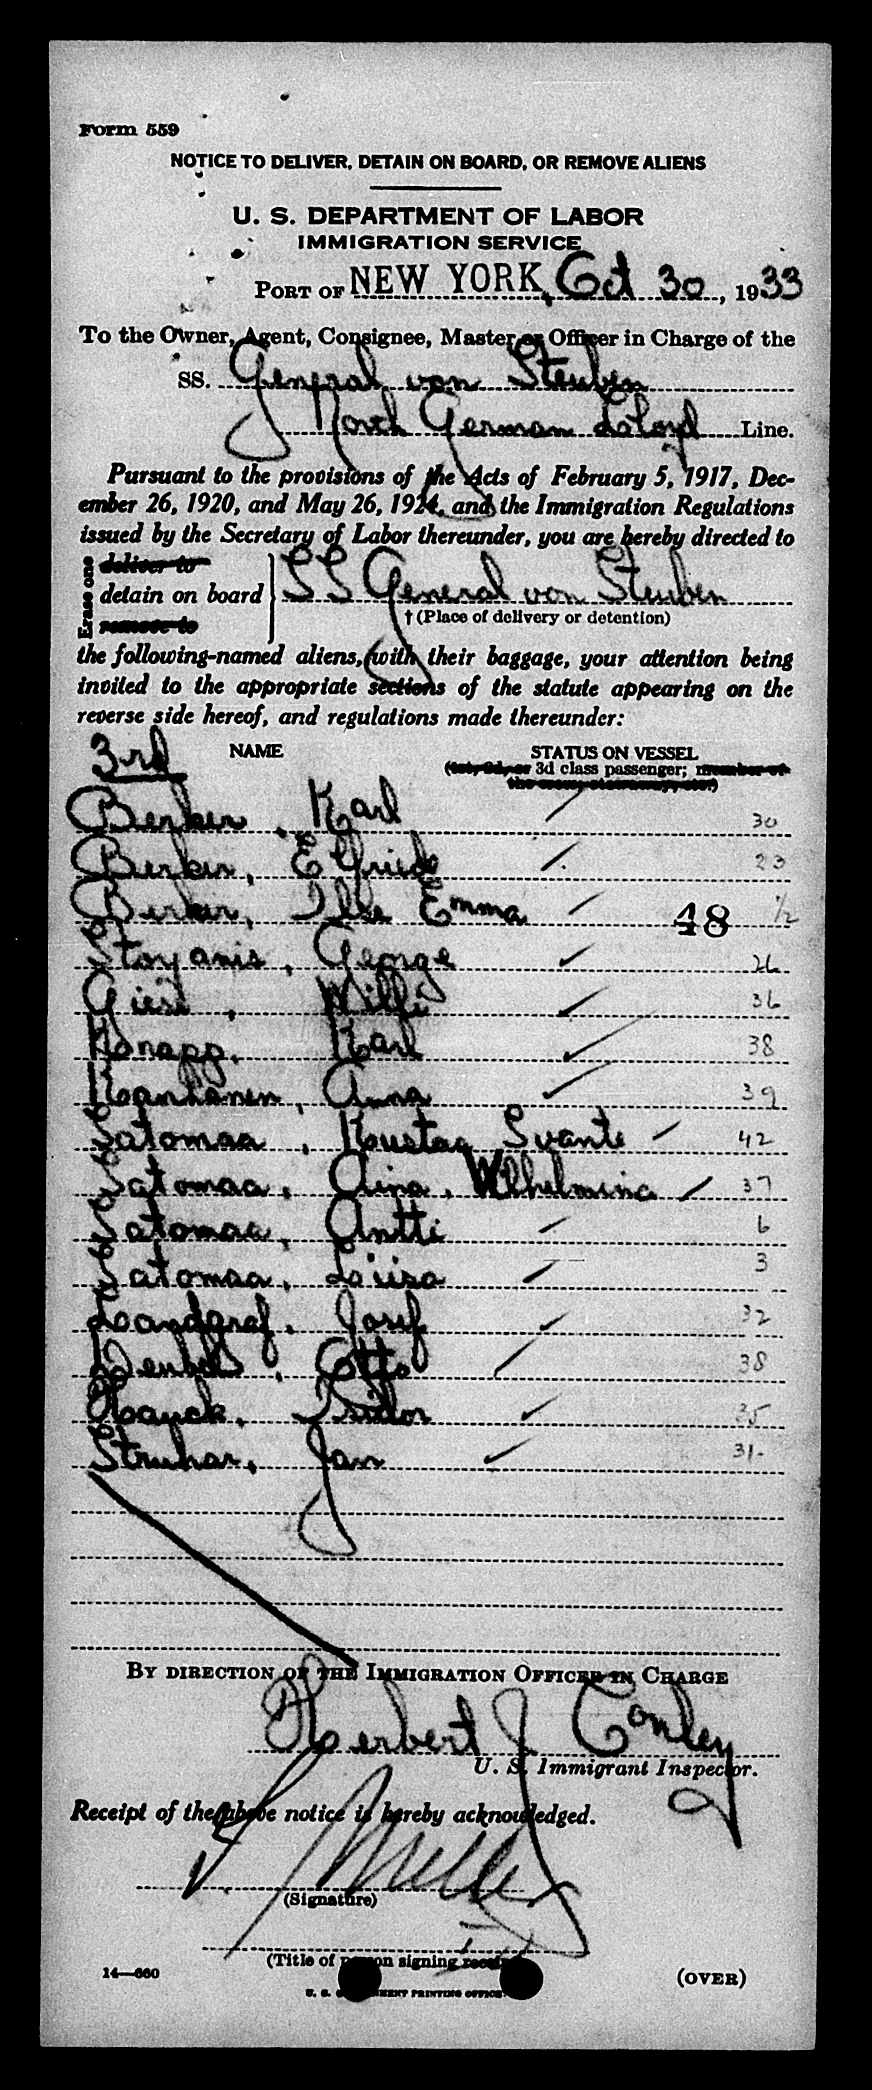 Form 559
NOTICE TO DELIVER, DETAIN ON BOARD, OR REMOVE ALIENS
U. S. DEPARTMENT OF LABOR
IMMIGRATION SERVICE
PORT OF NEW YORK, Oct 30, 1933
To the Owner, Agent, Consignee, Master or Officer in Charge of the
SS. General von Steuben
North German Lloyd Line.
Pursuant to the provisions of the Acts of February 5, 1917, Dec-
ember 26, 1920, and May 26, 1924, and the Immigration Regulations
issued by the Secretary of Labor thereunder, you are hereby directed to
Erase one
deliver to
detain on board } SS General von Steuben
remove to
† (Place of delivery or detention)
the following-named aliens, with their baggage, your attention being
invited to the appropriate sections of the statute appearing on the
reverse side hereof, and regulations made thereunder:
3rd NAME STATUS ON VESSEL
(1st, 2d, or 3d class passenger; member of
Berker, Karl 30
Berker, Elfriede 23
Berker, Ilse Emma 48 ½
Stoyanis, George 26
Giesl, Willi 36
Konapp, Karl 38
Kanhanen, Anna 39
Satomaa, Koustaa Svante 42
Satomaa, Aina, Wlhelmina 37
Satomaa, Antti 6
Satomaa, Louisa 3
Landgraf, Josef 32
Otto 38
Hauck, Isidor 35
Struhar, Jan 31
BY DIRECTION OF THE IMMIGRATION OFFICER IN CHARGE
Herbert J Conley
U. S. Immigrant Inspector.
Receipt of the above notice is hereby acknowledged.
(Signature)
(Title of person signing receipt)
14—660
(OVER)
U. S. GOVERNMENT PRINTING OFFICE